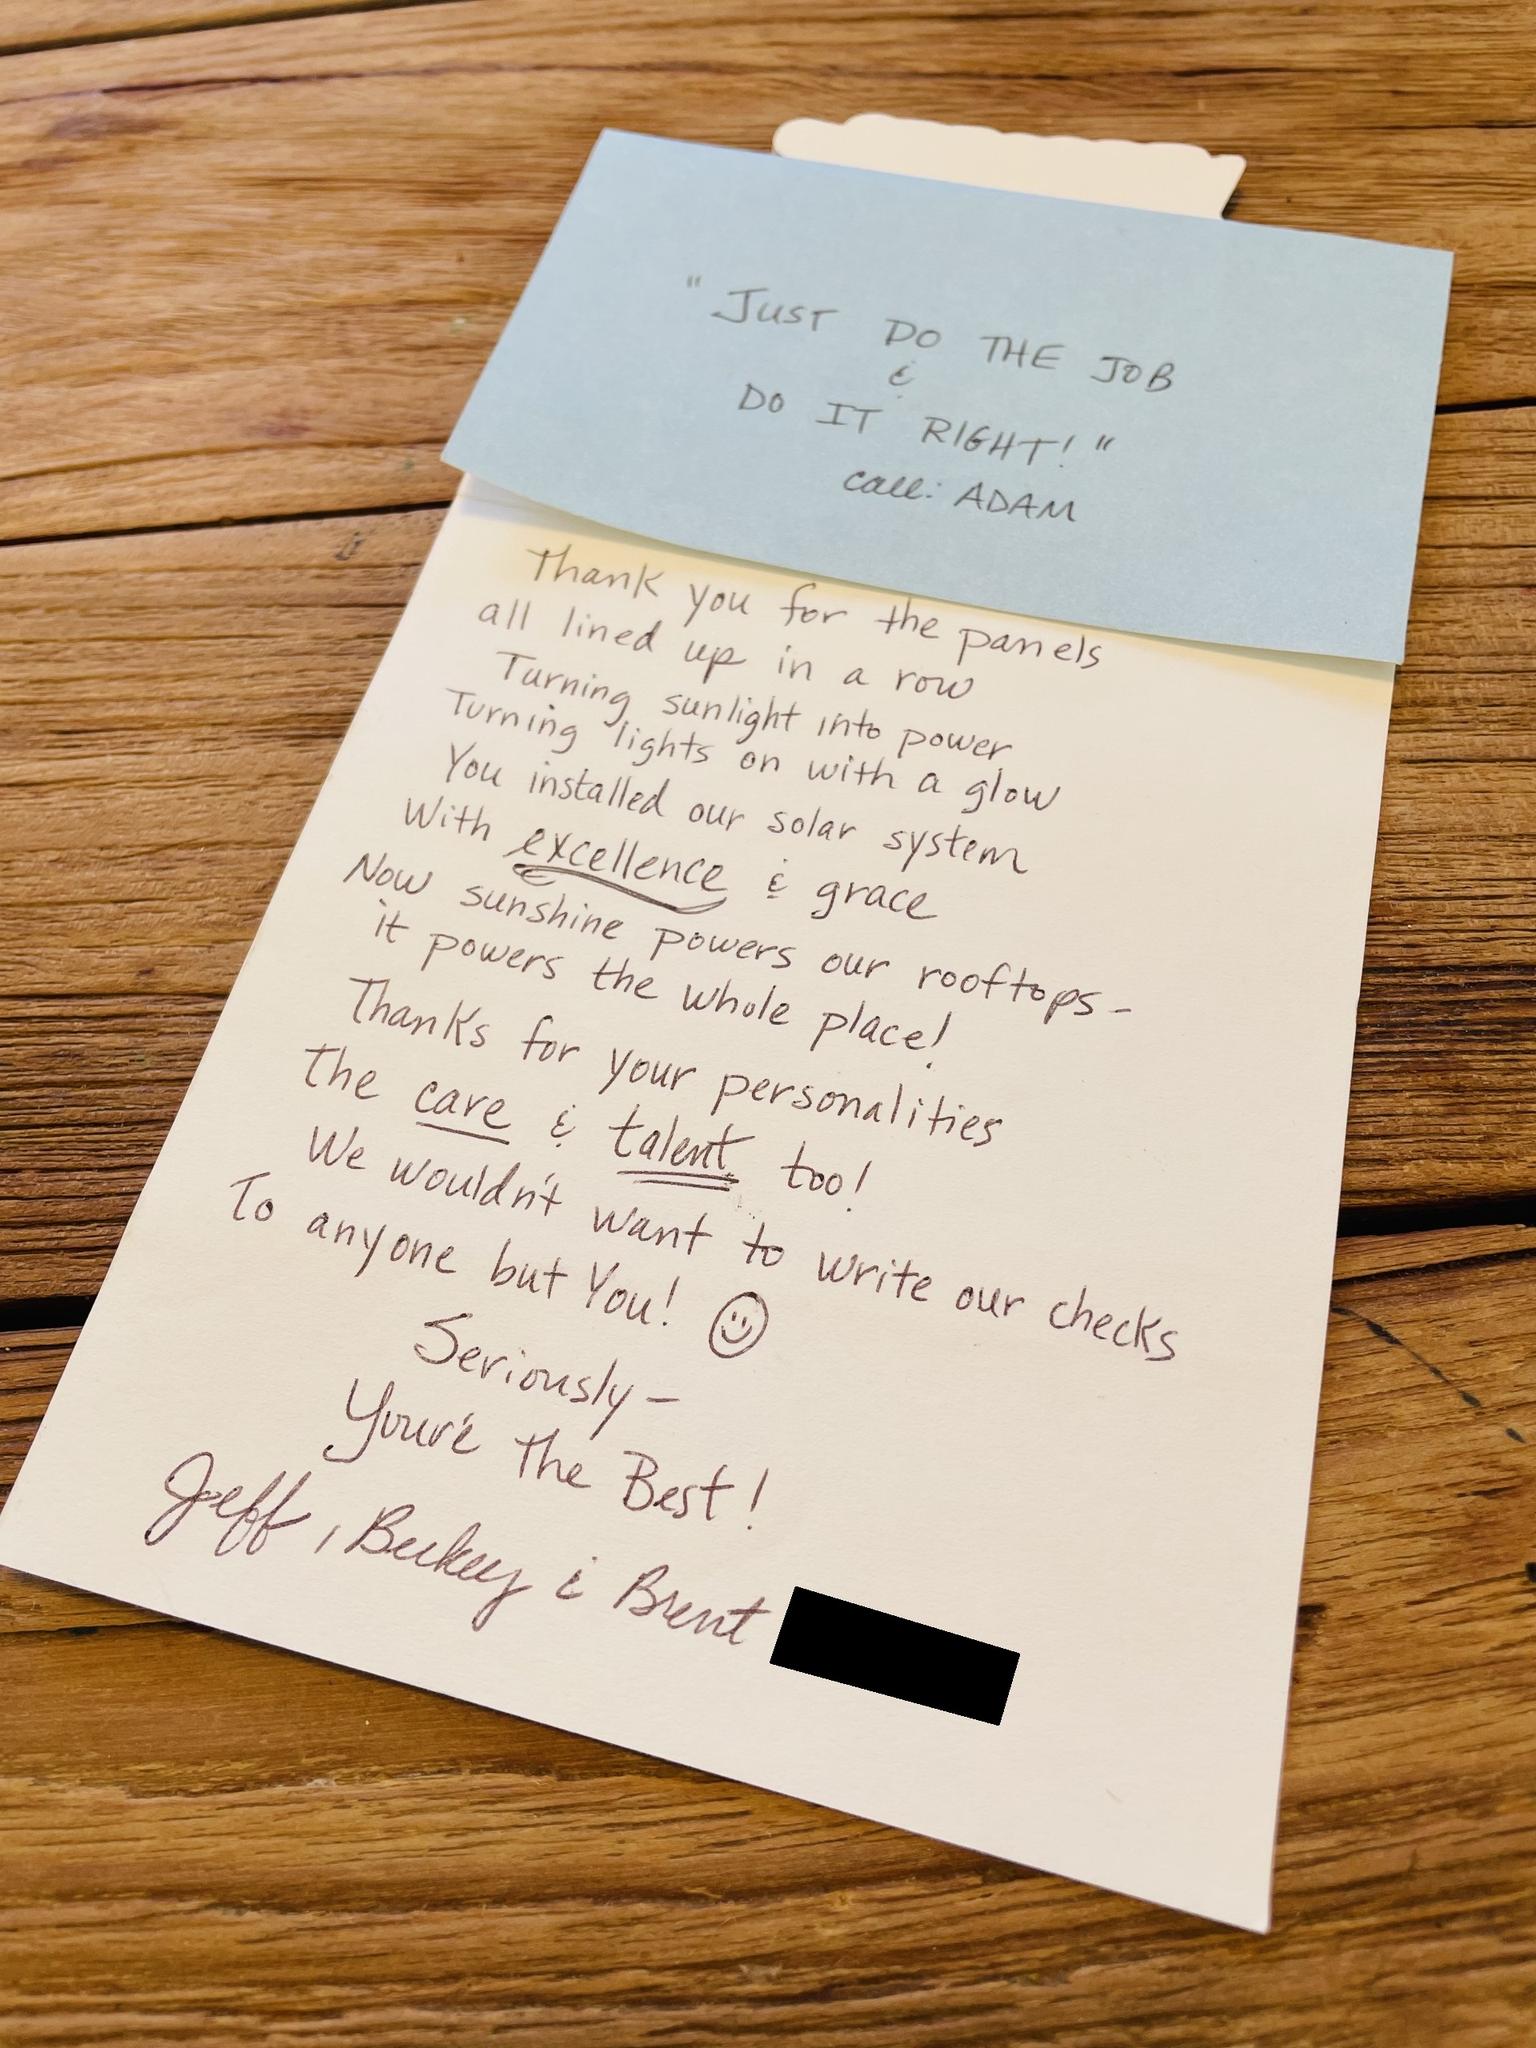 "JUST DO THE JOB
&
DO IT RIGHT!"
call: ADAM
Thank you for the panels
all lined up in a row
Turning sunlight into power
Turning lights on with a glow
You installed our solar system
With excellence & grace
Now sunshine powers our rooftops-
it powers the whole place!
Thanks for your personalities
The care & talent too!
We wouldn't want to write our checks
To anyone but You! ☺
Seriously-
Your'e the Best!
Jeff, Beckey & Brent